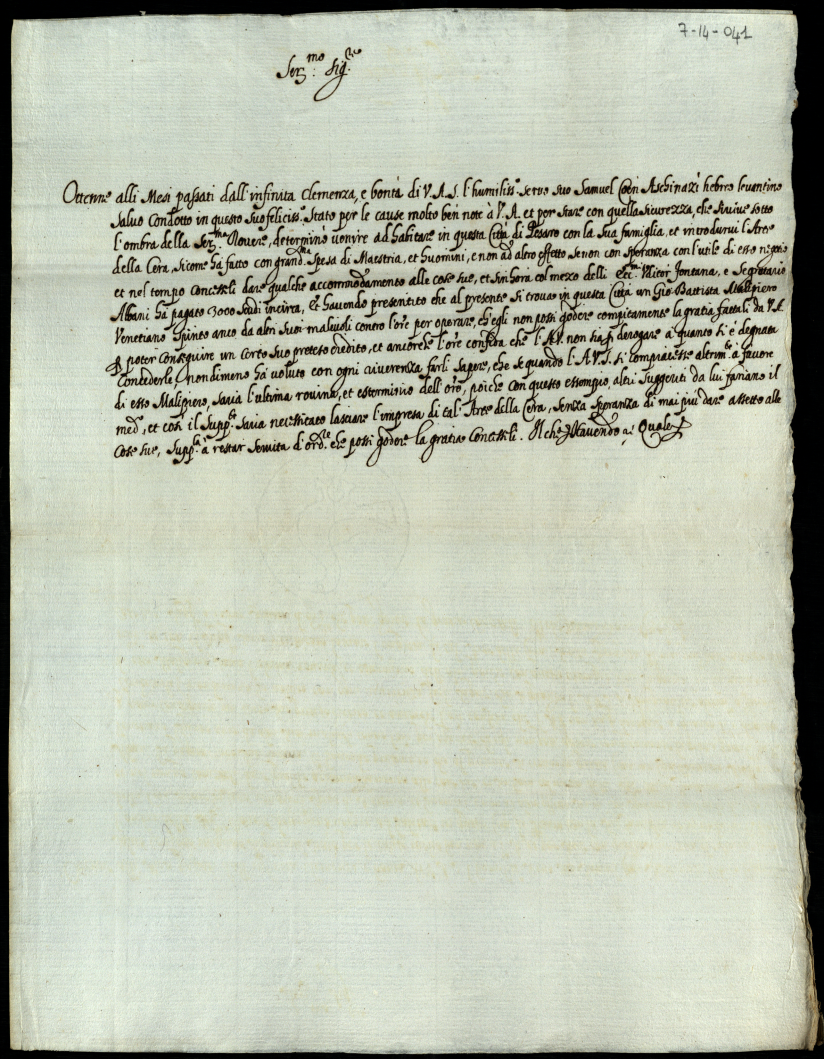 7-14-041
Ser.mo Sig.re
Ottenne alli Mesi passati dall'infinita Clemenza, e bontà di V.A.S. l'humiliss.o servo suo Samuel Coèn Aschinazì hebreo levantino
salvo Condotto in questo suo feliciss.o Stato per le cause molto ben note à V.A. et per stare con quella sicurezza, che si vive sotto
l'ombra della Ser.ma Rovere, determinò venire ad habitare in questa Città di Pesaro con la sua famiglia, et introdurvi l'Arte
della Cera, sicome hà fatto con grand.ma spesa di Maestria, et huomini, e non ad altro effetto se non con speranza con l'utile di esso negotio
et nel tempo Concessoli dare qualche accommodamento alle cose sue, et sin hora col mezo delli Ecc.mi Fontana, e Segretario
Albani hà pagato 3000 scudi incirca, Et havendo presentito che al presente si trova in questa Città un Gio: Battista Malipiero
Venetiano spinto anco da altri suoi malevoli contro l'ore per operare, ch'egli non possi godere compitamente la gratia fattali da V.A.
p poter conseguire un certo suo preteso credito, et ancorche l'ore confida che l'A.V. non sia p derogare a quanto si è degnata
Concederle, nondimeno hà voluto con ogni riverenza farli sapere, che se quando l'A.V.S. si compiacesse altrim.te à favore
di esso Malipiero, saria l'ultima rovina, et esterminio dell'ore, poiche con questo essempio, altri suggeriti da lui fariano il
med.o, et così il supp.te saria necessitato lasciare l'impresa di tal'Arte della Cera, senza speranza di mai più dare assetto alle
cose sue, supp.a à restar servita d'ord.re che possi godere la gratia Concessali. Il che havendo a Quale